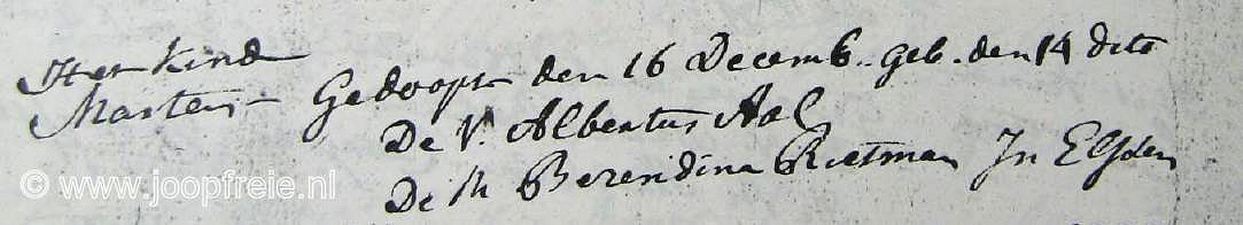 Het Kind
Marten - Gedoopt den 16 Decemb. geb. den 14 dito
De V. Albertus Aal
De M Berendina Rietman In Elsden
© www.joopfreie.nl